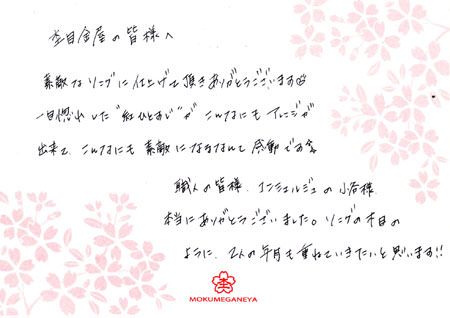 杢目金屋の皆様へ
素敵なリングに仕上げて頂きありがとうございます
一目惚れした"紅ひとすじ"が こんなにも アレンジが
出来て、こんなにも 素敵に なるなんて 感動です
職人の皆様、コンシェルジュの 小谷様
本当にありがとうございました。リングの木目の
ように、2人の年月も重ねていきたいと思います!!
MOKUMEGANEYA